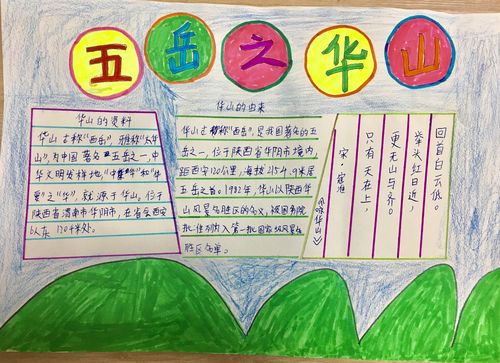 五岳之华山
华山的资料
华山古称“西岳”,雅称“太华
山”,为中国著名五岳之一,中
华文明发祥地,“中華”和“华
夏”之“华”,就源于华山,位于
陕西省渭南市华阴市,在省会西安
以东120千米处。
华山的由来
华山古称“西岳”,是我国著名的五
岳之一,位于陕西省华阴市境内,
距西安120公里,海拔2154.9米居
五岳之首。1982年,华山以陕西华
山风景名胜区的名义,被国务院
批准列入第一批国家级风景名
胜区名单。
《咏华山》
宋·寇准
只有天在上,
更无山与齐。
举头红日近,
回首白云低。